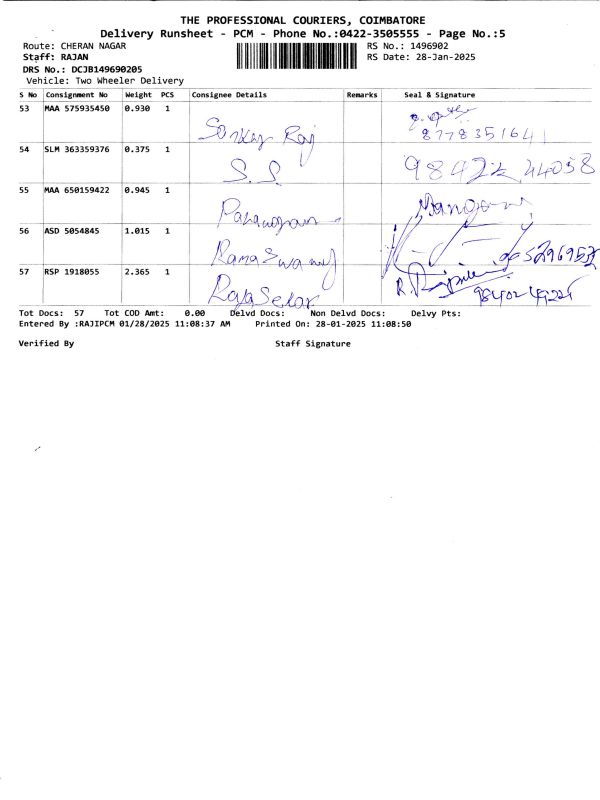 THE PROFESSIONAL COURIERS, COIMBATORE
Delivery Runsheet - PCM - Phone No.:0422-3505555 - Page No.:5
Route: CHERAN NAGAR RS No.: 1496902
Staff: RAJAN RS Date: 28-Jan-2025
DRS No.: DCJB149690205
Vehicle: Two Wheeler Delivery
S No Consignment No Weight PCS Consignee Details Remarks Seal & Signature
53 MAA 575935450 0.930 1
Sankay Raj 8778351641
54 SLM 363359376 0.375 1
S.S.
55 MAA 650159422 0.945 1
56 ASD 5054845 1.015 1
Rama Swamy
57 RSP 1918055 2.365 1
Raja Sekar
Tot Docs: 57 Tot COD Amt: 0.00 Delvd Docs: Non Delvd Docs: Delvy Pts:
Entered By :RAJIPCM 01/28/2025 11:08:37 AM Printed On: 28-01-2025 11:08:50
Verified By Staff Signature